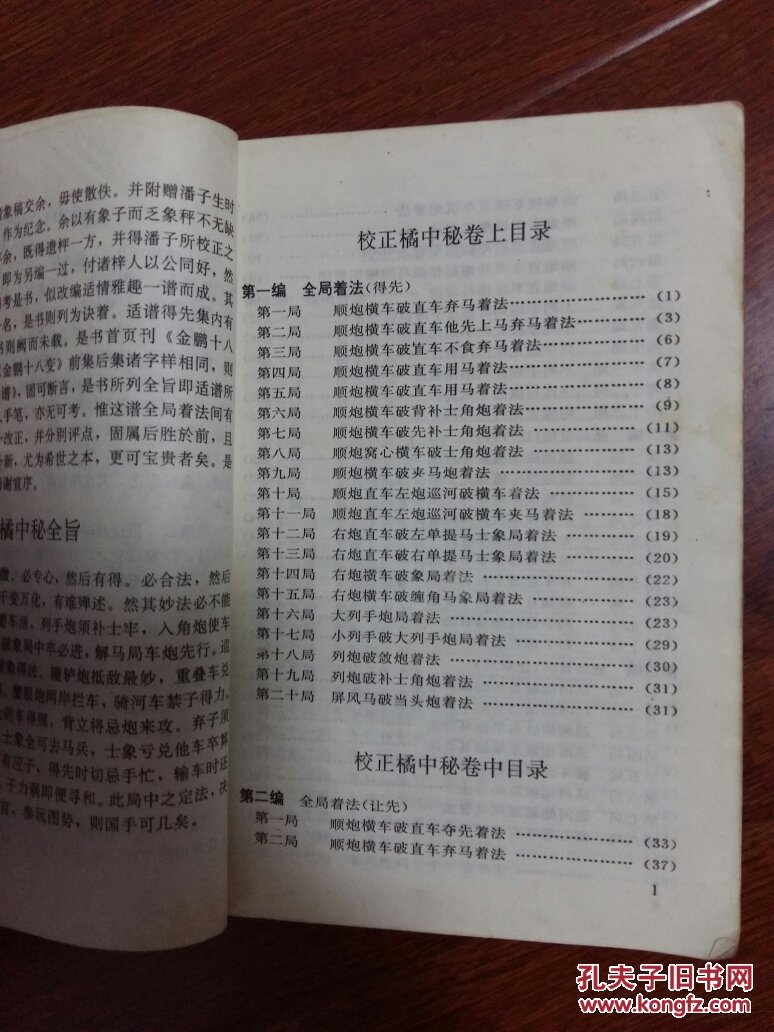 诸象稿交余，毋使散佚。并附赠潘子生时
，作为纪念。余以有象子而乏象秤不无缺
余，既得遗枰一方，并得潘子所校正之
即为另编一过，付诸梓人以公同好，然
考是书，似改编适情雅趣一谱而成。其
名，是书则列为诀着。适谱得先集内有
书则阙而未载。是书首页刊《金鹏十八
《金鹏十八变》前集后集诸字样相同，则
谱》，固可断言，是书所列全旨即适谱所
手笔，亦无可考。惟这谱全局着法间有
改正，并分别评点，固属后胜於前，且
新，尤为希世之本，更可宝贵者矣。是
谢宣序。
橘中秘全旨
微，必专心，然后有得。必合法，然后
千变万化，有难殚述。然其妙法必不能
要车活，列手炮须补士牢，入角炮使车
破象局中卒必进，解马局车炮先行。巡
案得法，辘轳炮抵敌最妙，重叠车兑
蟹眼炮两岸拦车，骑河车禁子得力，
防车得照，背立将忌炮来攻。弃子须
士象全可去马兵，士象亏兑他车卒算
有应子，得先时切忌手忙，输车时还
子力弱即便寻和。此局中之定法，决
，参玩图势，则国手可几矣。
校正橘中秘卷上目录
第一编 全局着法(得先)
第一局 顺炮横车破直车弃马着法……………(1)
第二局 顺炮横车破直车他先上马弃马着法………(3)
第三局 顺炮横车破直车不食弃马着法…………(6)
第四局 顺炮横车破直车用马着法……………(7)
第五局 顺炮横车破直车用马着法……………(8)
第六局 顺炮横车破背补士角炮着法……………(9)
第七局 顺炮横车破先补士角炮着法……………(11)
第八局 顺炮窝心横车破士角炮着法……………(13)
第九局 顺炮横车破夹马炮着法………………(13)
第十局 顺炮直车左炮巡河破横车着法…………(15)
第十一局 顺炮直车左炮巡河破横车夹马着法……(18)
第十二局 右炮直车破左单提马士象局着法………(19)
第十三局 右炮直车破右单提马士象局着法………(20)
第十四局 右炮横车破象局着法………………(22)
第十五局 右炮横车破缠角马象局着法…………(23)
第十六局 大列手炮局着法…………………(23)
第十七局 小列手破大列手炮局着法……………(29)
第十八局 列炮破敛炮着法…………………(30)
第十九局 列炮破补士角炮着法………………(31)
第二十局 屏风马破当头炮着法………………(31)
校正橘中秘卷中目录
第二编 全局着法(让先)
第一局 顺炮横车破直车夺先着法……………(33)
第二局 顺炮横车破直车弃马着法……………(37)
1
孔夫子旧书网
www.kongfz.com